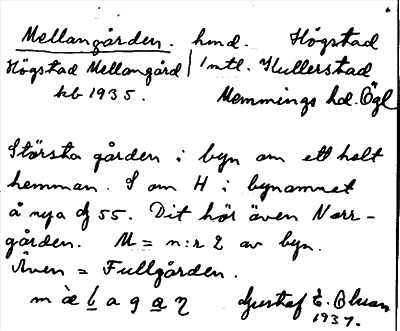 Mellangården. hmd. Högstad
Högstad Mellangård / mtl. Kullerstad
kb 1935. Memmings hd. Ögl
Största gården i byn om ett helt
hemman. S om H i bynamnet
å nya 55. Dit hör även Norr-
gården. M = n:r 2 av byn.
Även = Fullgården.
Gustaf E.
1937.